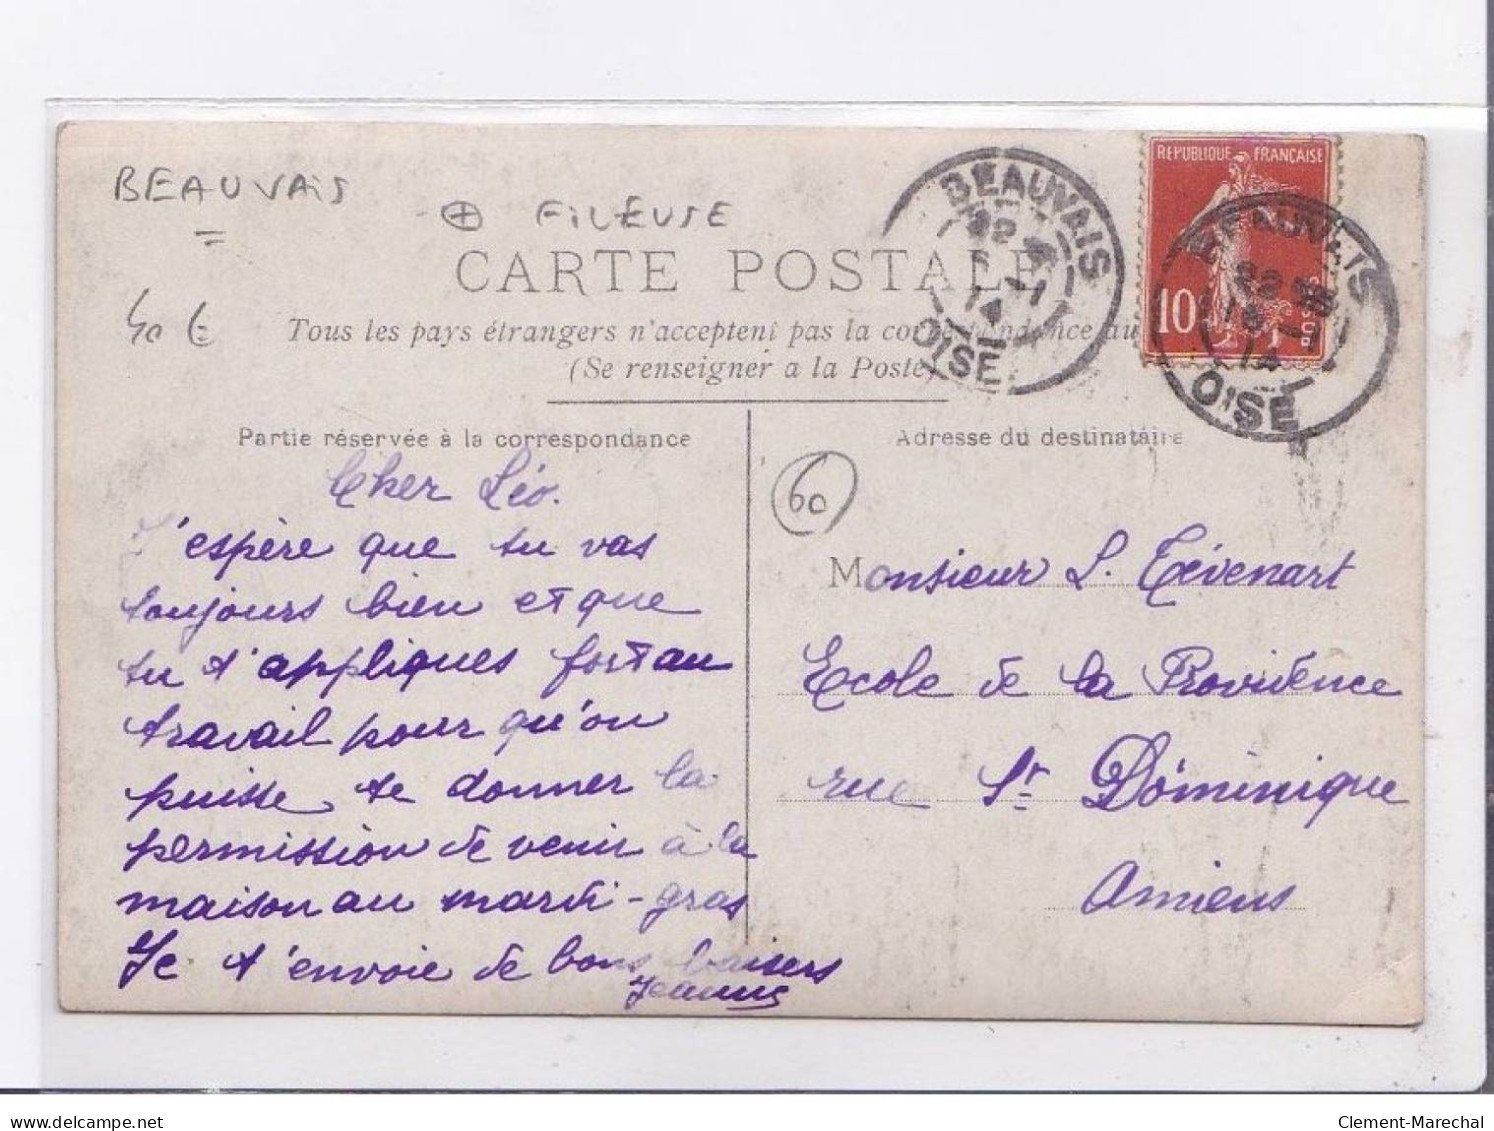 BEAUVAIS
⊕ FILEUSE
CARTE POSTALE
40 €
Tous les pays étrangers n'acceptent pas la correspondance au
(Se renseigner a la Poste)
BEAUVAIS
22
14
OISE
REPUBLIQUE FRANÇAISE
10
BEAUVAIS
22
14
OISE
Partie réservée à la correspondance
Cher Léo.
J'espère que tu vas
toujours bien et que
tu t'appliques fort au
travail pour qu'on
puisse te donner la
permission de venir à la
maison au mardi-gras
Je t'envoie de bons baisers
Adresse du destinataire
60
Monsieur L. Tévenart
Ecole de la Providence
rue St Dominique
Amiens
Clement-Marechal
www.delcampe.net